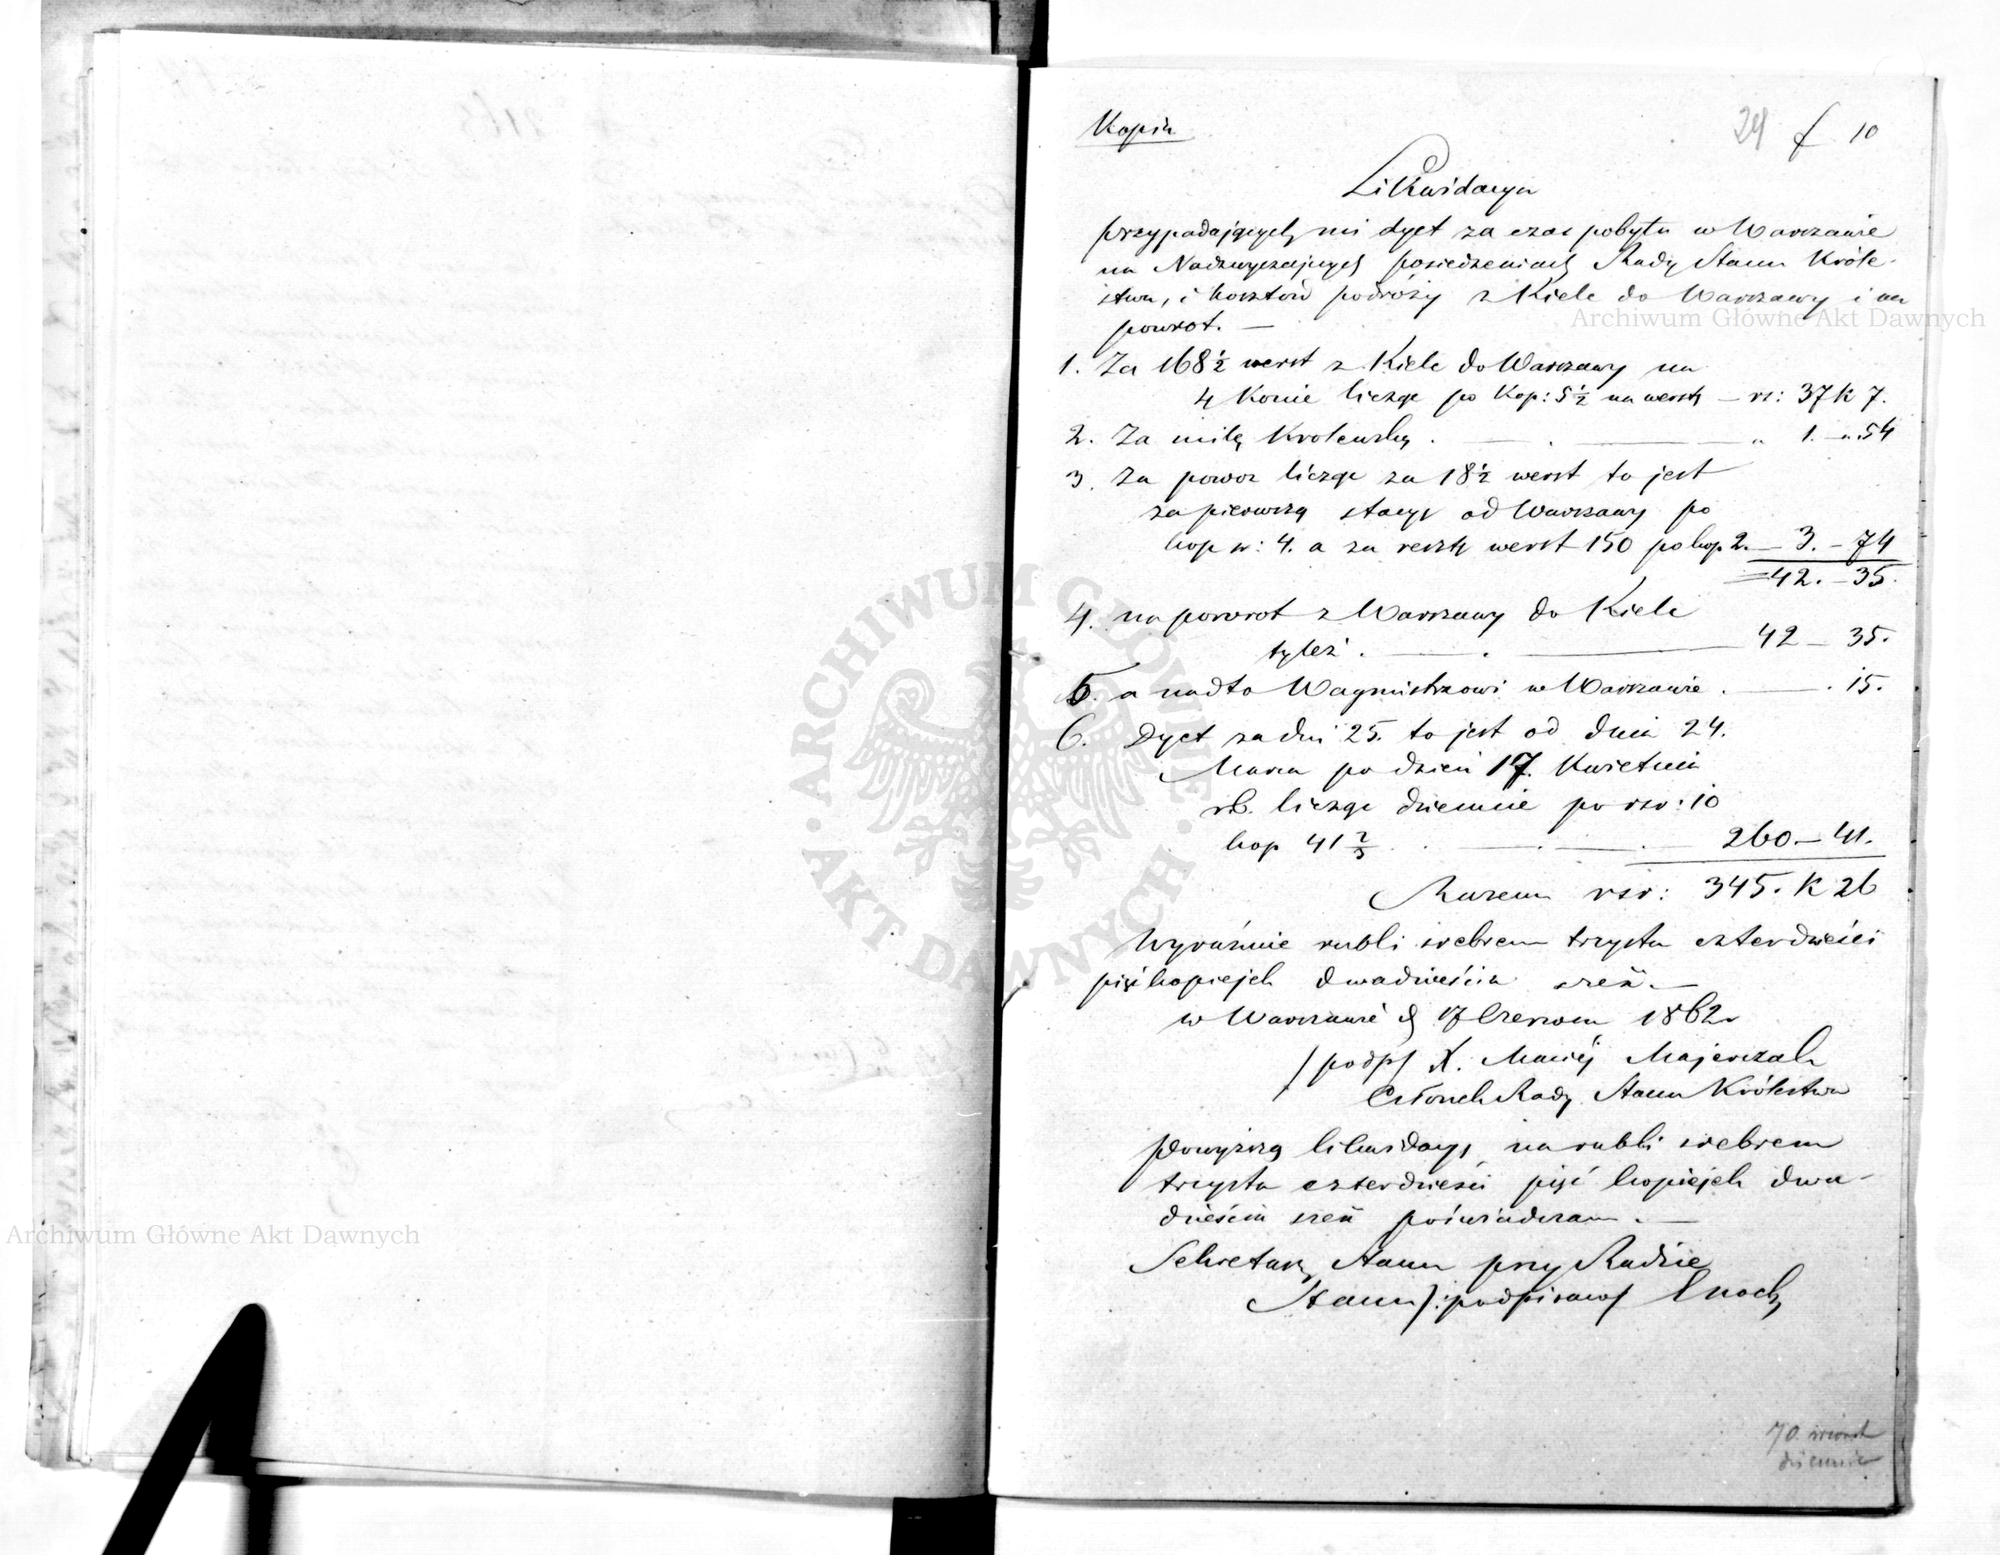 Kopia
24 f 10
Likwidacya
przypadających mi dyet za czas pobytu w Warszawie
na Nadzwyczajnych posiedzeniach Rady Stanu Króle-
stwa, i kosztów podróży z Kielc do Warszawy i na
powrot. —
1. Za 168 ½ werst z Kielc do Warszawy na
4 konie licząc po kop: 5 ½ na werstę — rs: 37 k 7.
2. Za milę Krolewską . — . — " 1. — " 54
3. Za powoz licząc za 18 ½ werst to jest
za pierwszą stacyę od Warszawy po
kop sr: 4. a za resztę werst 150 po kop 2. — 3. — 74
42. — 35.
4. na powrot z Warszawy do Kielc
tyleż . — . — 42 — 35.
5. a nadto Wagmistrzowi w Warszawie . — . 15.
6. Dyet za dni 25. to jest od dnia 24.
Marca po dzień 17. Kwietnia
rb. licząc dziennie po rsr: 10
kop 41 ⅔ . — . — . 260 — 41.
Razem rsr: 345. k 26
Wyraźnie rubli srebrem trzysta czterdzieści
pięć kopiejek dwadzieścia sześć. —
w Warszawie d 17 Czerwca 1862 r
/podp/ X. Maciej Majerczak
Członek Rady Stanu Królestwa
Powyższą likwidacyę na rubli srebrem
trzysta czterdzieści pięć kopiejek dwa-
dzieścia sześć poświadczam. —
Sekretarz Stanu przy Radzie
Stanu /:podpisano/ Enoch
70.
dziennie
Archiwum Główne Akt Dawnych
Archiwum Główne Akt Dawnych
ARCHIWUM GŁÓWNE · AKT DAWNYCH ·